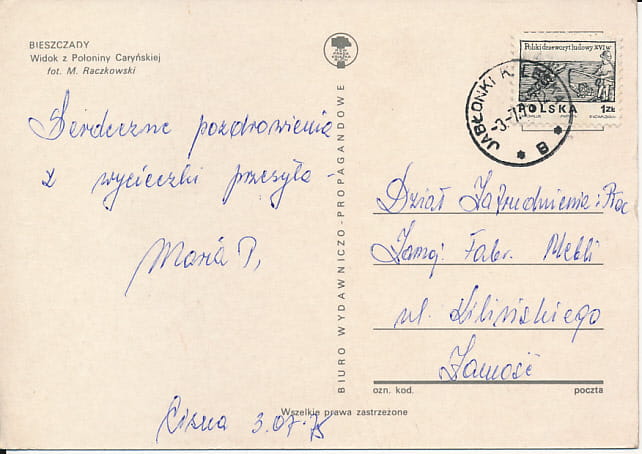 BIESZCZADY
Widok z Połoniny Caryńskiej
fot. M. Raczkowski
Serdeczne pozdrowienia
z wycieczki przesyła -
Maria P,
Cisna 3.07.75
Wszelkie prawa zastrzeżone
BIURO WYDAWNICZO-PROPAGANDOWE
Polski drzeworyt ludowy XVI w
POLSKA 1ZŁ
JABŁONKI K.
-3.-7.
* B *
Dział Zatrudnienia i Płac
Zamoj. Fabr. Mebli
ul. Kilińskiego
Zamość
ozn. kod. poczta